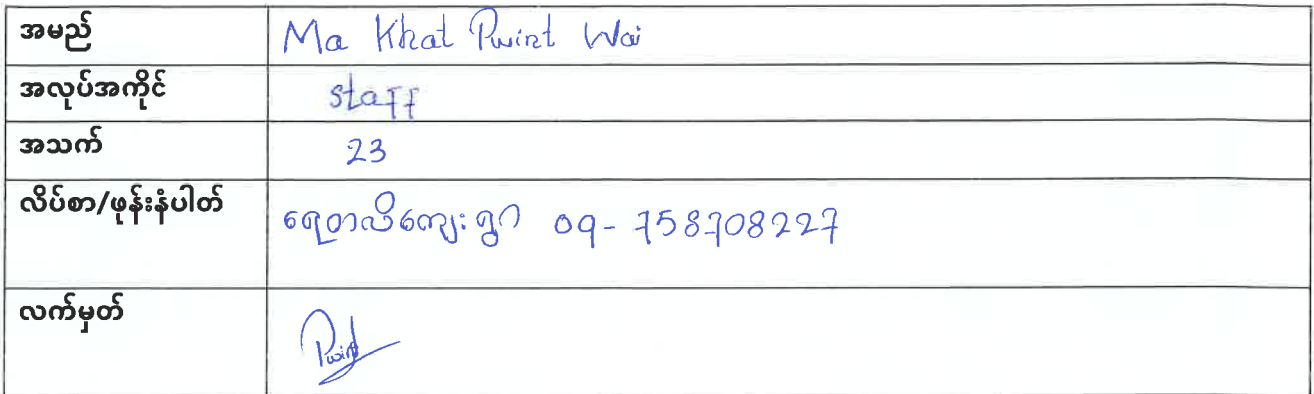 အမည် Ma Khat Pwint Wai
အလုပ်အကိုင် staff
အသက် 23
လိပ်စာ/ဖုန်းနံပါတ် ရေတာလိကျေးရွာ 09-758708227
လက်မှတ် Pwint